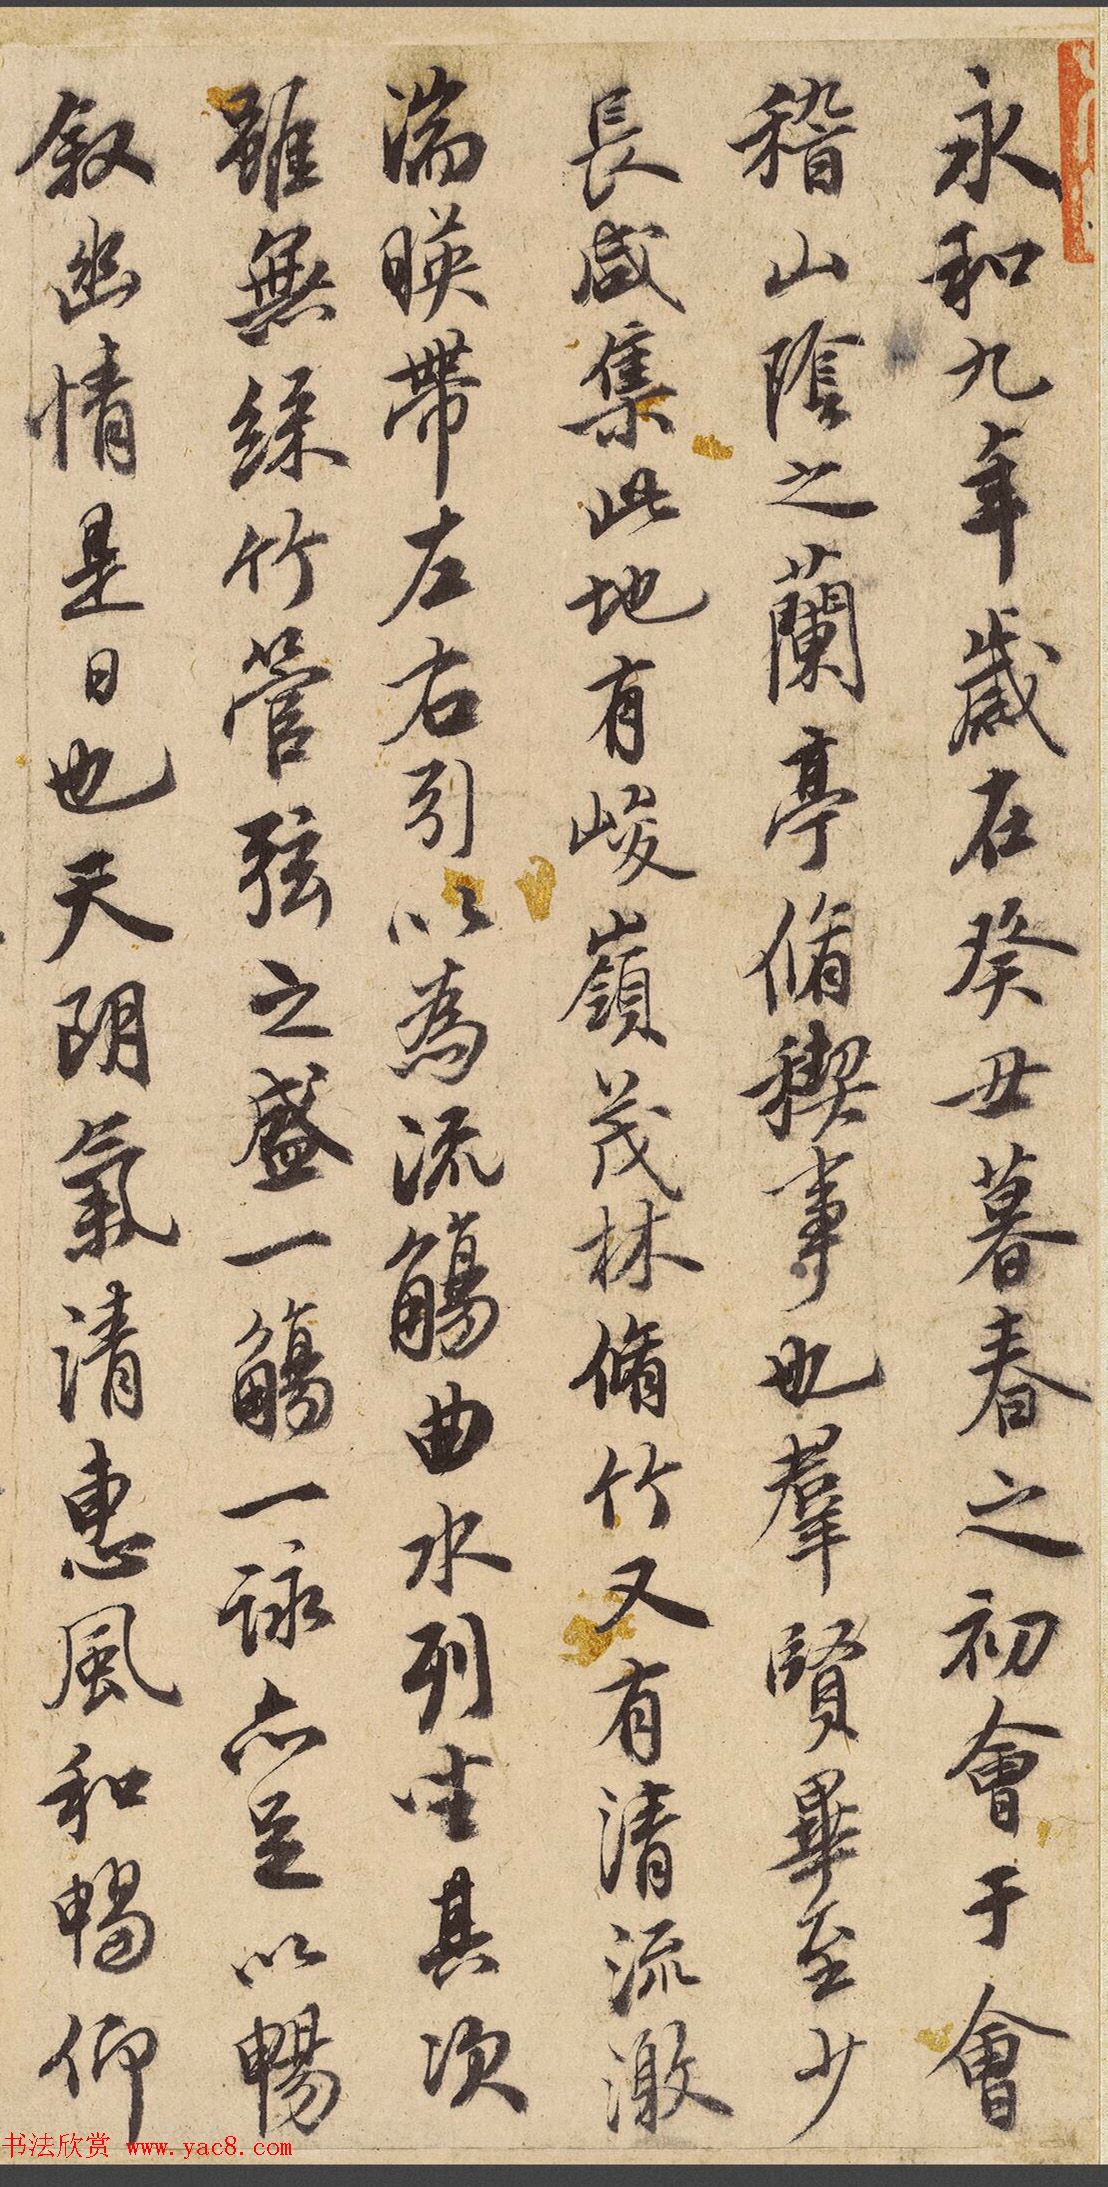 永和九年歲在癸丑暮春之初會于會
稽山陰之蘭亭脩稧事也羣賢畢至少
長咸集此地有峻嶺茂林脩竹又有清流激
湍暎帶左右引以為流觴曲水列坐其次
雖無絲竹管弦之盛一觴一詠亦足以暢
敘幽情是日也天陰氣清惠風和暢仰
书法欣赏 www.yac8.com